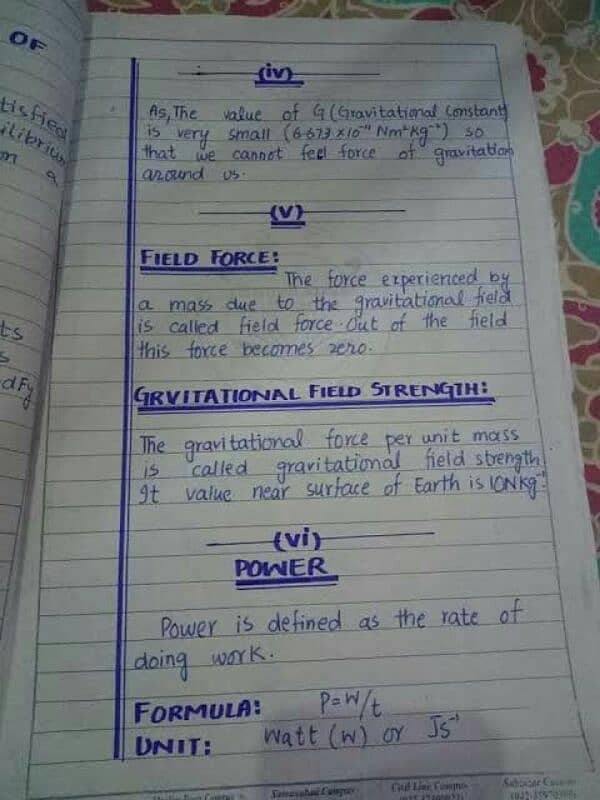 OF
(iv)
As, The value of G (Gravitational Constant)
is very small (6.673 x10⁻¹¹ Nm²kg⁻²) so
that we cannot feel force of gravitation
around us.
(v)
FIELD FORCE:
The force experienced by
a mass due to the gravitational field
is called field force. Out of the field
this force becomes zero.
GRVITATIONAL FIELD STRENGTH:
The gravitational force per unit mass
is called gravitational field strength.
It value near surface of Earth is 10Nkg⁻¹.
(vi)
POWER
Power is defined as the rate of
doing work.
FORMULA: P=W/t
UNIT: Watt (W) or Js⁻¹